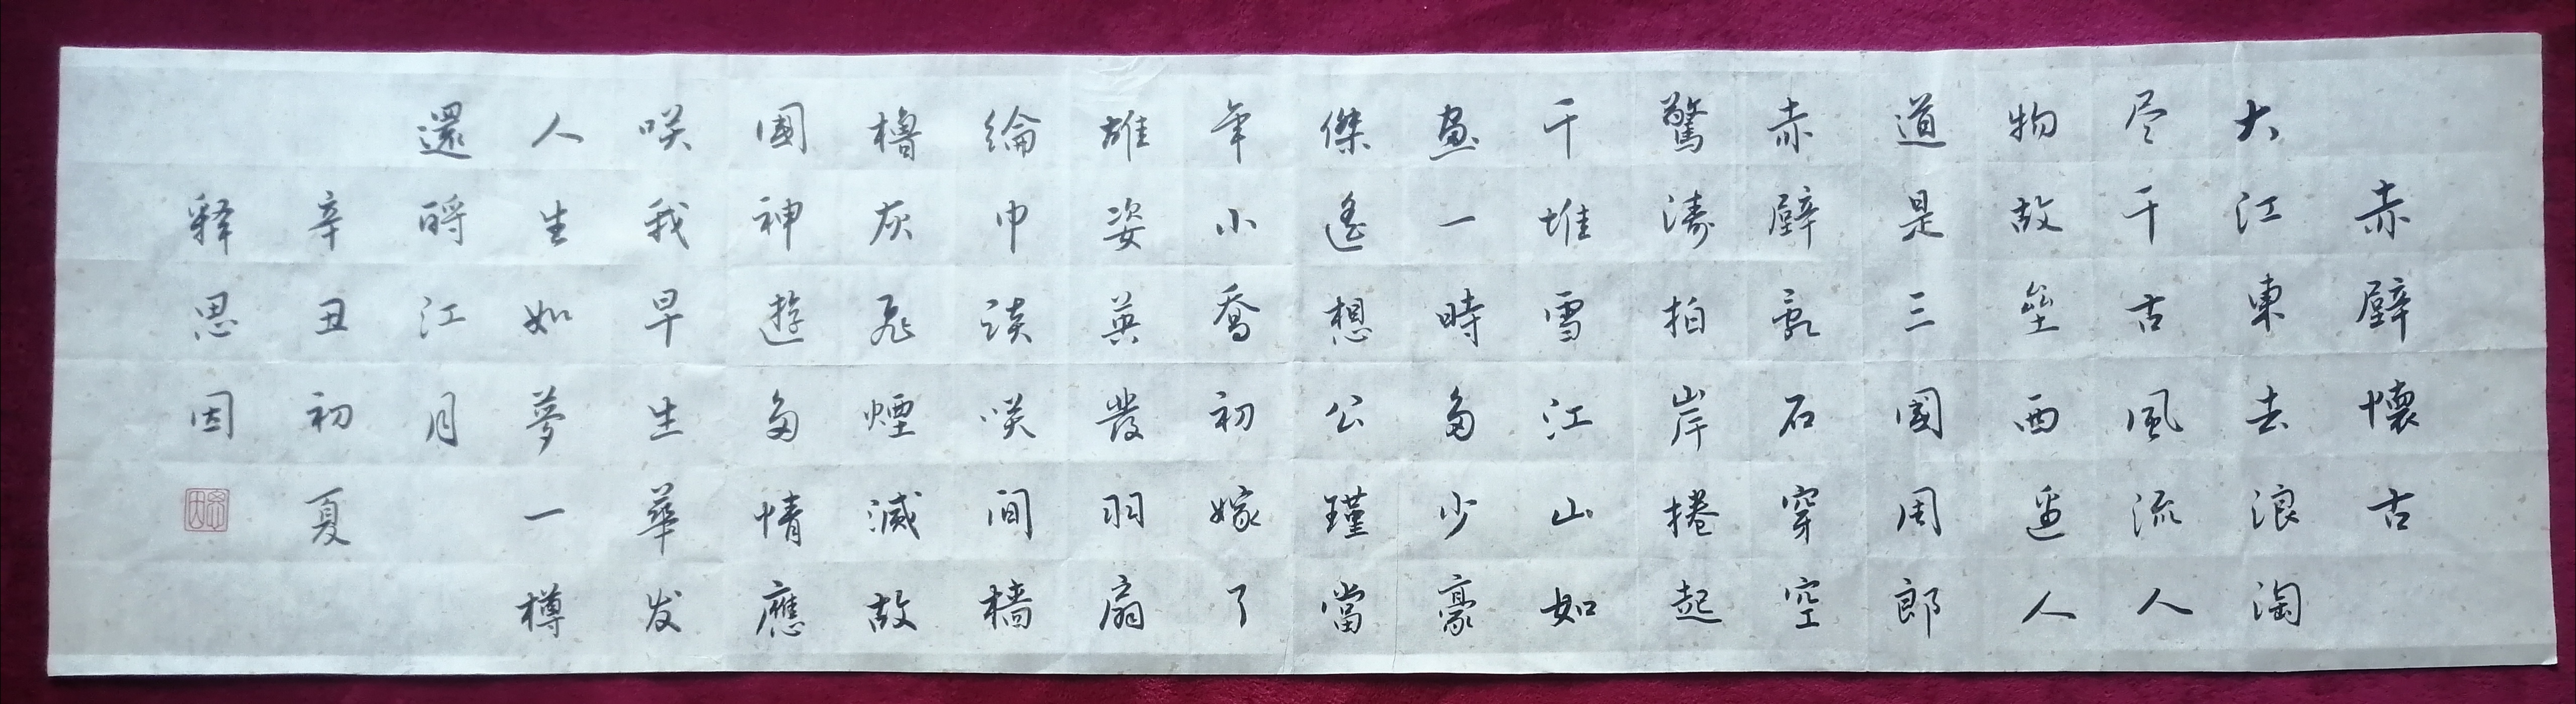 赤壁懷古
大江東去浪淘
尽千古風流人
物故壘西邊人
道是三國周郎
赤壁亂石穿空
驚濤拍岸捲起
千堆雪江山如
畫一時多少豪
傑遙想公瑾當
年小喬初嫁了
雄姿英發羽扇
綸巾談笑間檣
櫓灰飛煙滅故
國神遊多情應
笑我早生華发
人生如夢一樽
還酹江月
辛丑初夏
釋思因